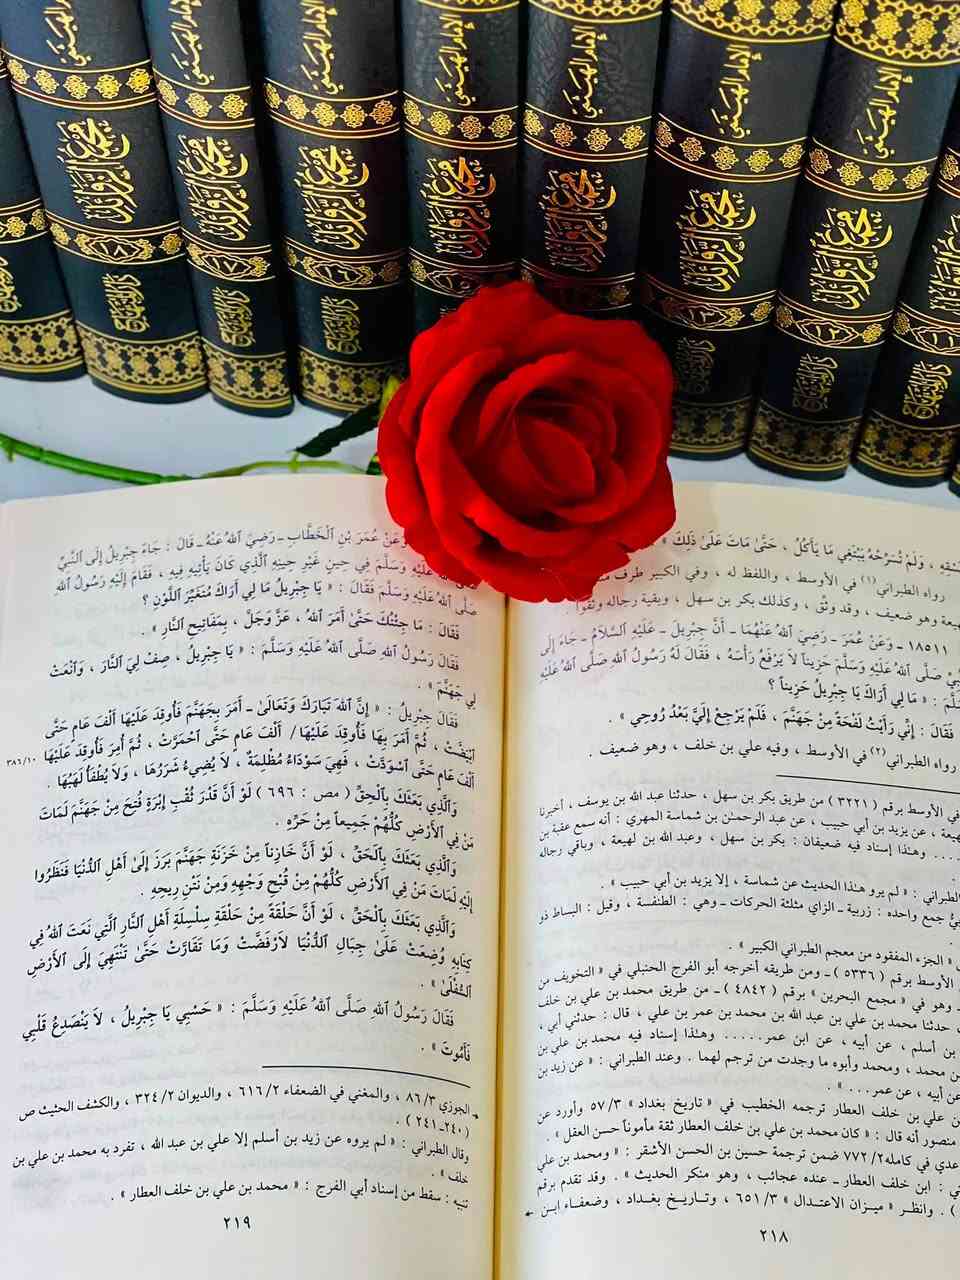 الإمام الهيثمي
مجمع الزوائد
١٨
دار المنهاج
الإمام الهيثمي
مجمع الزوائد
١٧
دار المنهاج
الإمام الهيثمي
مجمع الزوائد
١٦
دار المنهاج
الإمام الهيثمي
مجمع الزوائد
الإمام الهيثمي
مجمع الزوائد
الإمام الهيثمي
مجمع الزوائد
١٣
دار المنهاج
الإمام الهيثمي
مجمع الزوائد
١٢
دار المنهاج
١١
دار المنهاج
، وَلَمْ تُسَرِّحْهُ يَبْتَغِي مَا يَأْكُلُ ، حَتَّىٰ مَاتَ عَلَىٰ ذَلِكَ » .
رواه الطبراني(١) في الأوسط ، واللفظ له ، وفي الكبير طرف
وهو ضعيف ، وقد وثق ، وكذلك بكر بن سهل ، وبقية رجاله وثقوا .
١٨٥١١ ـ وَعَنْ عُمَرَ ـ رَضِيَ ٱللهُ عَنْهُمَا ـ أَنَّ جِبْرِيلَ ـ عَلَيْهِ ٱلسَّلَامُ ـ جَاءَ إِلَى
صَلَّى ٱللهُ عَلَيْهِ وَسَلَّمَ حَزِيناً لَا يَرْفَعُ رَأْسَهُ ، فَقَالَ لَهُ رَسُولُ ٱللهِ صَلَّى ٱللهُ عَلَيْهِ
: « مَا لِي أَرَاكَ يَا جِبْرِيلُ حَزِيناً ؟
فَقَالَ : إِنِّي رَأَيْتُ لَفْحَةً مِنْ جَهَنَّمَ ، فَلَمْ يَرْجِعْ إِلَيَّ بَعْدُ رُوحِي » .
رواه الطبراني(٢) في الأوسط ، وفيه علي بن خلف ، وهو ضعيف .
في الأوسط برقم ( ٣٢٢١ ) من طريق بكر بن سهل ، حدثنا عبد الله بن يوسف ، أخبرنا
، عن يزيد بن أبي حبيب ، عن عبد الرحمٰن بن شماسة المهري : أنه سمع عقبة بن
.... وهٰذا إسناد فيه ضعيفان : بكر بن سهل ، وعبد الله بن لهيعة ، وباقي رجاله
الطبراني : « لم يرو هٰذا الحديث عن شماسة ، إلا يزيد بن أبي حبيب » .
جمع واحده : زربية ـ الزاي مثلثة الحركات ـ وهي : الطنفسة ، وقيل : البساط ذو
« الجزء المفقود من معجم الطبراني الكبير » .
الأوسط برقم ( ٥٣٣٦ ) ـ ومن طريقه أخرجه أبو الفرج الحنبلي في « التخويف من
، وهو في « مجمع البحرين » برقم ( ٤٨٤٢ ) ـ من طريق محمد بن علي بن خلف
، حدثنا محمد بن علي بن عبد الله بن محمد بن عمر بن علي ، قال : حدثني أبي ،
بن أسلم ، عن أبيه ، عن ابن عمر..... وهٰذا إسناد فيه محمد بن علي بن
بن محمد ، ومحمد وأبوه ما وجدت من ترجم لهما . وعند الطبراني : « عن زيد بن
عن أبيه ، عن عمر... » .
بن علي بن خلف العطار ترجمه الخطيب في « تاريخ بغداد » ٥٧/٣ وأورد عن
منصور أنه قال : « كان محمد بن علي بن خلف العطار ثقة مأموناً حسن العقل » .
عدي في كامله ٧٧٢/٢ ضمن ترجمة حسين بن الحسن الأشقر : « ومحمد بن علي
: ابن خلف العطار ـ عنده عجائب ، وهو منكر الحديث » . وقد تقدم برقم
) . وانظر « ميزان الاعتدال » ٦٥١/٣ ، وتاريخ بغداد ، وضعفاء ابن
٢١٨
وَعَنْ عُمَرَ بْنِ ٱلْخَطَّابِ ـ رَضِيَ ٱللهُ عَنْهُ ـ قَالَ : جَاءَ جِبْرِيلُ إِلَى ٱلنَّبِيِّ
عَلَيْهِ وَسَلَّمَ فِي حِينٍ غَيْرِ حِينِهِ ٱلَّذِي كَانَ يَأْتِيهِ فِيهِ ، فَقَامَ إِلَيْهِ رَسُولُ ٱللهِ
صَلَّى ٱللهُ عَلَيْهِ وَسَلَّمَ فَقَالَ : « يَا جِبْرِيلُ مَا لِي أَرَاكَ مُتَغَيِّرَ ٱللَّوْنِ ؟
فَقَالَ : مَا جِئْتُكَ حَتَّىٰ أَمَرَ ٱللهُ ، عَزَّ وَجَلَّ ، بِمَفَاتِيحِ ٱلنَّارِ » .
فَقَالَ رَسُولُ ٱللهِ صَلَّى ٱللهُ عَلَيْهِ وَسَلَّمَ : « يَا جِبْرِيلُ ، صِفْ لِيَ ٱلنَّارَ ، وَٱنْعَتْ
لِي جَهَنَّمَ » .
فَقَالَ جِبْرِيلُ : « إِنَّ ٱللهَ تَبَارَكَ وَتَعَالَىٰ ـ أَمَرَ بِجَهَنَّمَ فَأُوقِدَ عَلَيْهَا أَلْفَ عَامٍ حَتَّى
ٱبْيَضَّتْ ، ثُمَّ أَمَرَ بِهَا فَأُوقِدَ عَلَيْهَا / أَلْفَ عَامٍ حَتَّى ٱحْمَرَّتْ ، ثُمَّ أُمِرَ فَأُوقِدَ عَلَيْهَا
٣٨٦/١٠
أَلْفَ عَامٍ حَتَّى ٱسْوَدَّتْ ، فَهِيَ سَوْدَاءُ مُظْلِمَةٌ ، لَا يُضِيءُ شَرَرُهَا ، وَلَا يُطْفَأُ لَهَبُهَا .
وَٱلَّذِي بَعَثَكَ بِٱلْحَقِّ ( مص : ٦٩٦ ) لَوْ أَنَّ قَدْرَ ثُقْبِ إِبْرَةٍ فُتِحَ مِنْ جَهَنَّمَ لَمَاتَ
مَنْ فِي ٱلْأَرْضِ كُلُّهُمْ جَمِيعاً مِنْ حَرِّهِ .
وَٱلَّذِي بَعَثَكَ بِٱلْحَقِّ ، لَوْ أَنَّ خَازِناً مِنْ خَزَنَةِ جَهَنَّمَ بَرَزَ إِلَىٰ أَهْلِ ٱلدُّنْيَا فَنَظَرُوا
إِلَيْهِ لَمَاتَ مَنْ فِي ٱلْأَرْضِ كُلُّهُمْ مِنْ قُبْحِ وَجْهِهِ وَمِنْ نَتْنِ رِيحِهِ .
وَٱلَّذِي بَعَثَكَ بِٱلْحَقِّ ، لَوْ أَنَّ حَلْقَةً مِنْ حَلْقَةِ سِلْسِلَةِ أَهْلِ ٱلنَّارِ ٱلَّتِي نَعَتَ ٱللهُ فِي
كِتَابِهِ وُضِعَتْ عَلَىٰ جِبَالِ ٱلدُّنْيَا لَارْفَضَّتْ وَمَا تَقَارَّتْ حَتَّىٰ تَنْتَهِيَ إِلَى ٱلْأَرْضِ
ٱلسُّفْلَىٰ » .
فَقَالَ رَسُولُ ٱللهِ صَلَّى ٱللهُ عَلَيْهِ وَسَلَّمَ : « حَسْبِي يَا جِبْرِيلُ ، لَا يَنْصَدِعُ قَلْبِي
فَأَمُوتَ » .
الجوزي ٨٦/٣ ، والمغني في الضعفاء ٦١٦/٢ ، والديوان ٣٢٤/٢ ، والكشف الحثيث ص
( ٢٤٠ـ ٢٤١ ) .
وقال الطبراني : « لم يروه عن زيد بن أسلم إلا علي بن عبد الله ، تفرد به محمد بن علي بن
خلف » .
تنبيه : سقط من إسناد أبي الفرج : « محمد بن علي بن خلف العطار » .
٢١٩